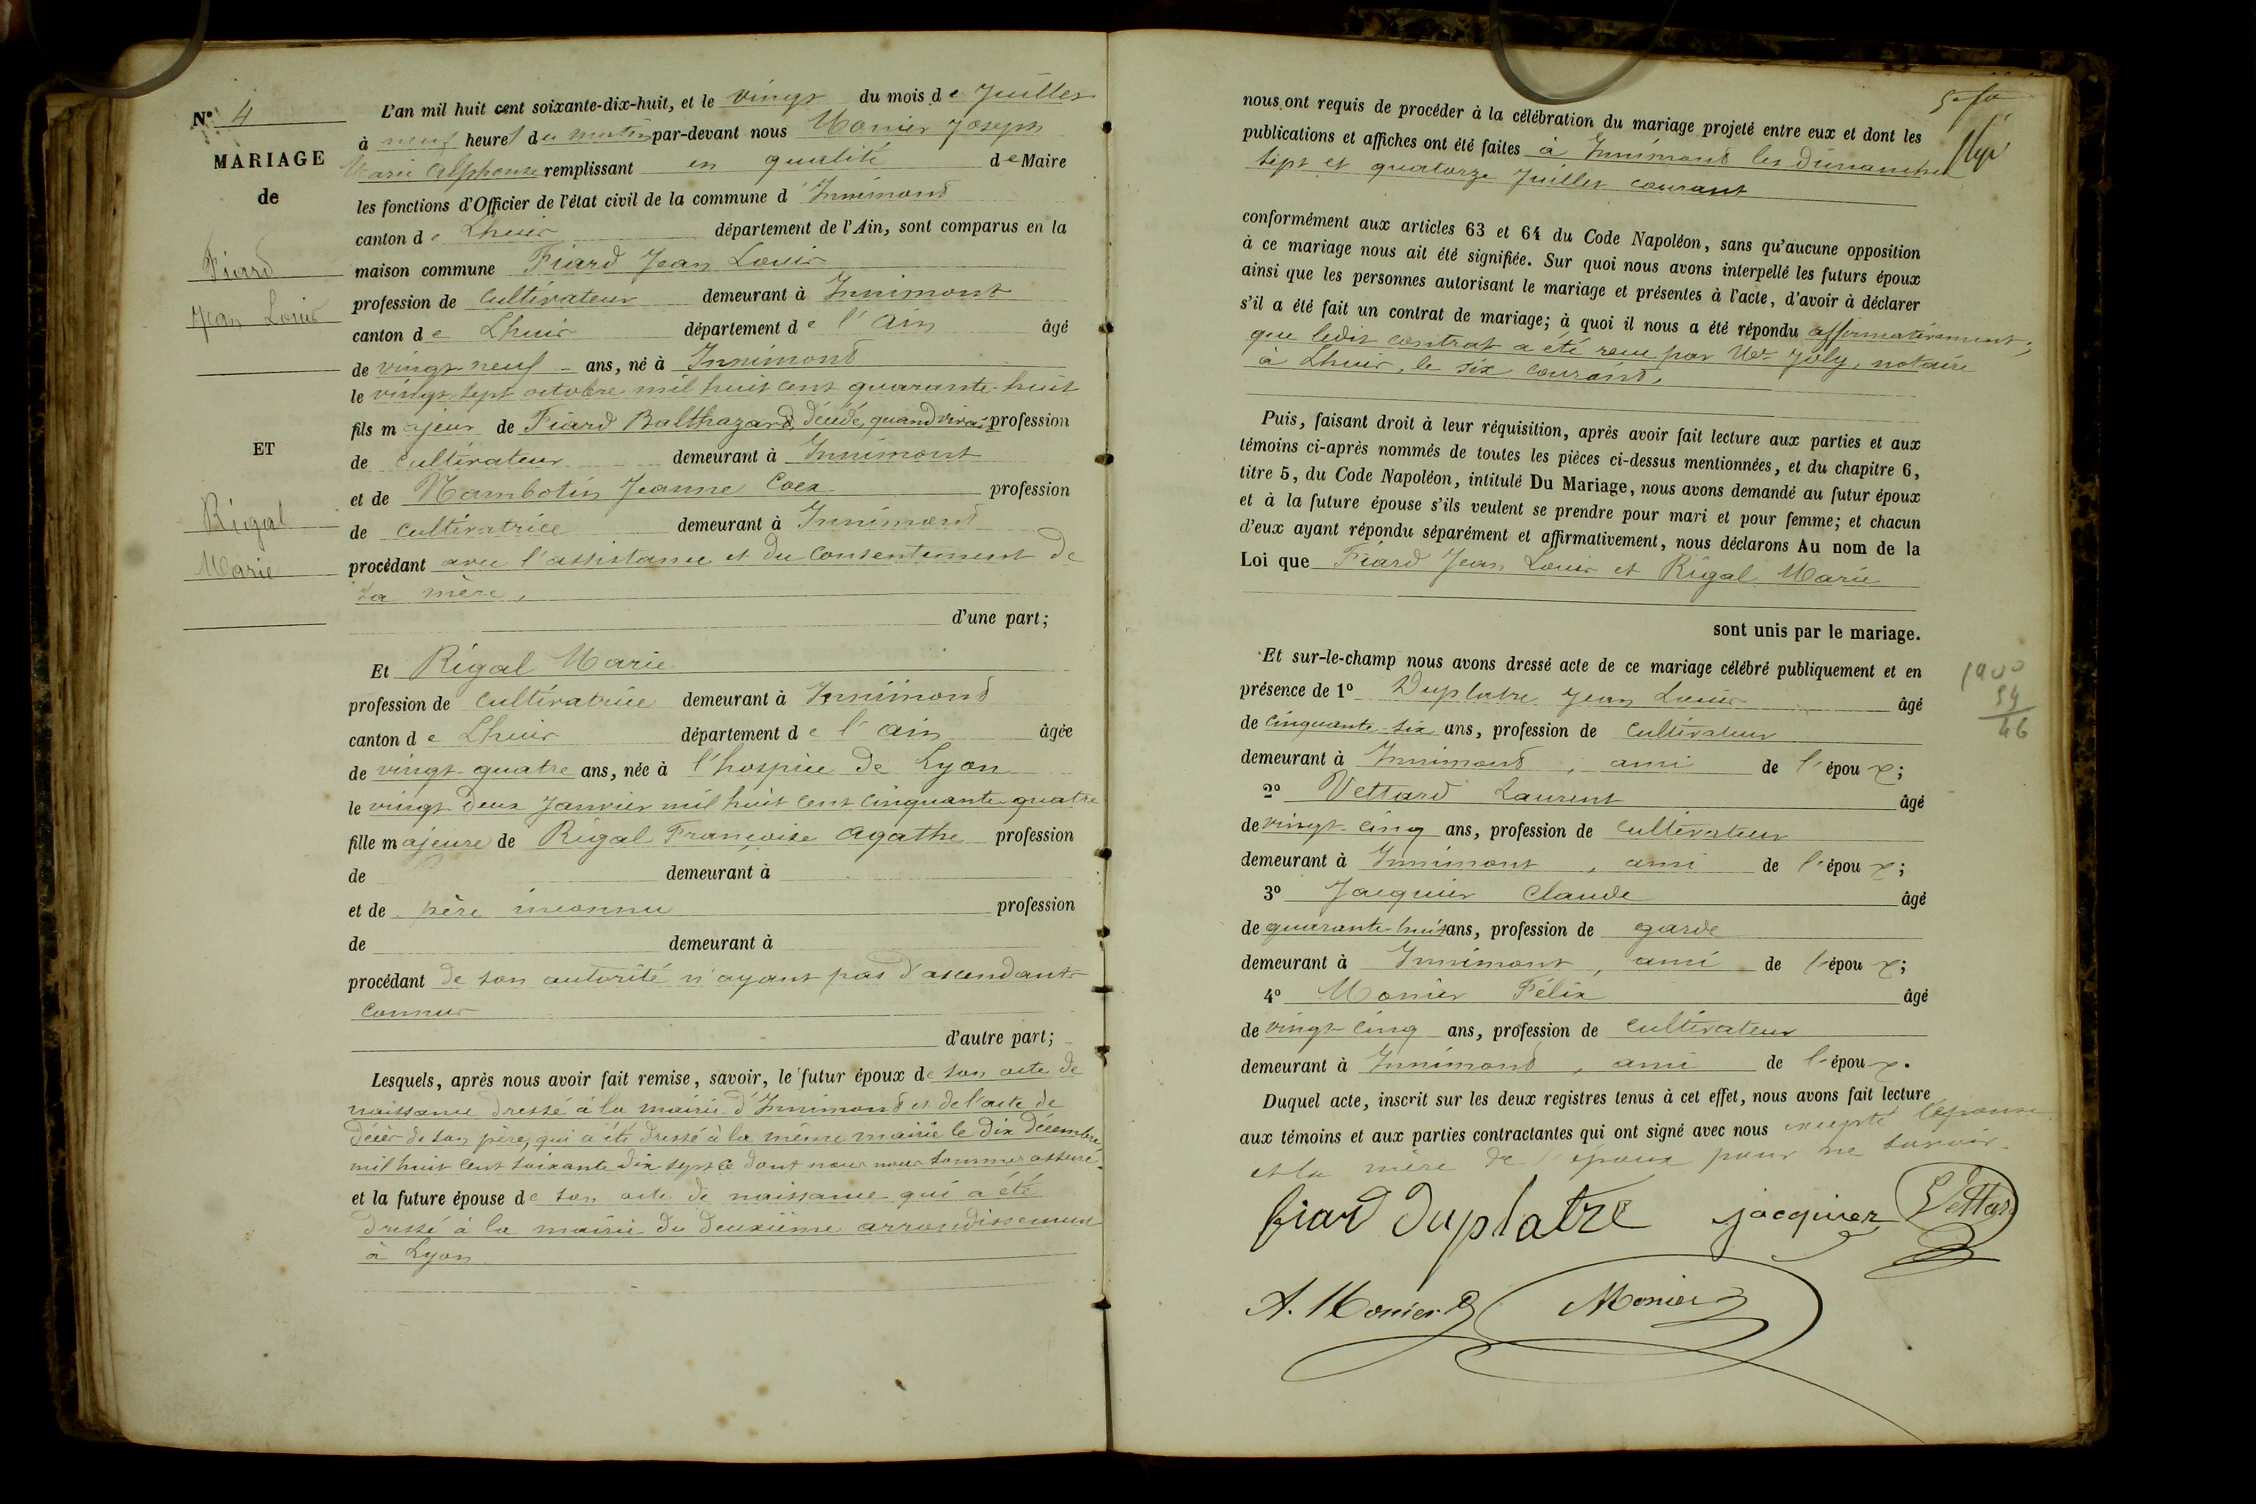 N° 4
MARIAGE
de
Fiard
Jean Louis
ET
Rigal
Marie
L'an mil huit cent soixante-dix-huit, et le vingt du mois de Juillet
à neuf heures du matin par-devant nous Monier Joseph
Marie Alphonse remplissant en qualité de Maire
les fonctions d'Officier de l'état civil de la commune d'Innimond
canton de Lhuis département de l'Ain, sont comparus en la
maison commune Fiard Jean Louis
profession de cultivateur demeurant à Innimont
canton de Lhuis département de l'Ain âgé
de vingt-neuf ans, né à Innimond
le vingt-sept octobre mil huit cent quarante-huit
fils majeur de Fiard Balthazard, décédé, quand vivait profession
de cultivateur demeurant à Innimont
et de Nambotin Jeanne profession
de cultivatrice demeurant à Innimond
procédant avec l'assistance et du consentement de
sa mère,
d'une part;
Et Rigal Marie
profession de cultivatrice demeurant à Innimond
canton de Lhuis département de l'Ain âgée
de vingt-quatre ans, née à l'hospice de Lyon
le vingt-deux Janvier mil huit cent cinquante-quatre
fille majeure de Rigal Françoise Agathe profession
de demeurant à
et de père inconnu profession
de demeurant à
procédant de son autorité n'ayant pas d'ascendants
connus
d'autre part;
Lesquels, après nous avoir fait remise, savoir, le futur époux de son acte de
naissance dressé à la mairie d'Innimond et de l'acte de
décès de son père, qui a été dressé à la même mairie le dix Décembre
mil huit cent soixante dix sept ce dont nous nous sommes assuré.
et la future épouse de son acte de naissance qui a été
dressé à la mairie du deuxième arrondissement
à Lyon
nous ont requis de procéder à la célébration du mariage projeté entre eux et dont les
publications et affiches ont été faites à Innimond les dimanches
sept et quatorze Juillet courant
conformément aux articles 63 et 64 du Code Napoléon, sans qu'aucune opposition
à ce mariage nous ait été signifiée. Sur quoi nous avons interpellé les futurs époux
ainsi que les personnes autorisant le mariage et présentes à l'acte, d'avoir à déclarer
s'il a été fait un contrat de mariage; à quoi il nous a été répondu affirmativement,
que ledit contrat a été reçu par Me Joly, notaire
à Lhuis, le six courant.
Puis, faisant droit à leur réquisition, après avoir fait lecture aux parties et aux
témoins ci-après nommés de toutes les pièces ci-dessus mentionnées, et du chapitre 6,
titre 5, du Code Napoléon, intitulé Du Mariage, nous avons demandé au futur époux
et à la future épouse s'ils veulent se prendre pour mari et pour femme; et chacun
d'eux ayant répondu séparément et affirmativement, nous déclarons Au nom de la
Loi que Fiard Jean Louis et Rigal Marie
sont unis par le mariage.
Et sur-le-champ nous avons dressé acte de ce mariage célébré publiquement et en
présence de 1° Duplatre Jean Louis âgé
de cinquante-six ans, profession de cultivateur
demeurant à Innimond, ami de l'époux;
2° Vettard Laurent âgé
de vingt-cinq ans, profession de cultivateur
demeurant à Innimont, ami de l'époux;
3° Jacquier Claude âgé
de quarante-huit ans, profession de garde
demeurant à Innimont, ami de l'époux;
4° Monier Félix âgé
de vingt-cinq ans, profession de cultivateur
demeurant à Innimond, ami de l'époux.
Duquel acte, inscrit sur les deux registres tenus à cet effet, nous avons fait lecture
aux témoins et aux parties contractantes qui ont signé avec nous excepté l'épouse
et la mère de l'époux pour ne savoir.
1900
54
46
fiard Duplatre jacquier Vettard
A. Monier Monier